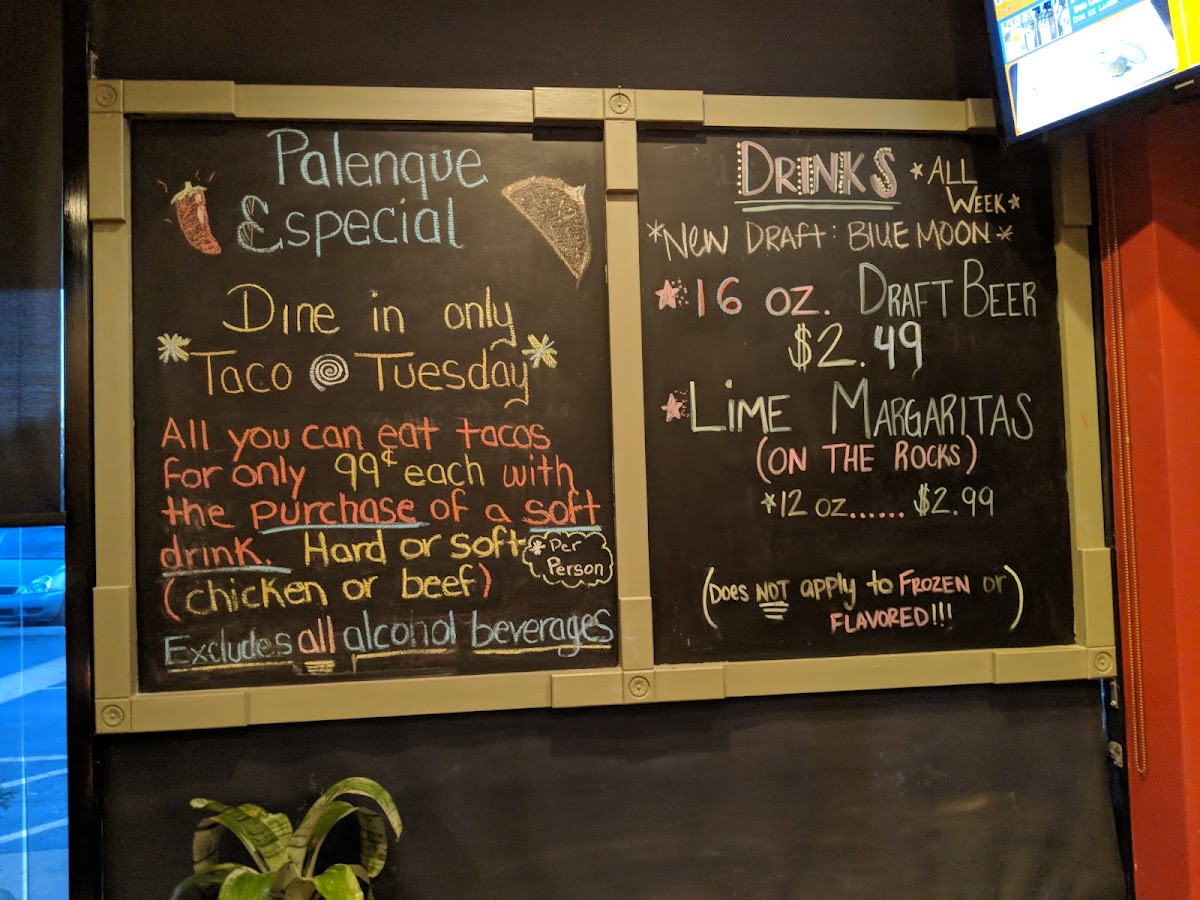 Palenque
Especial
Dine in only
*Taco Tuesday*
All you can eat tacos
for only 99¢ each with
the purchase of a soft
drink. Hard or soft
*Per
Person
(chicken or beef)
Excludes all alcohol beverages
DRINKS *ALL
WEEK*
*NEW DRAFT: BLUE MOON*
16 oz. DRAFT BEER
$2.49
LIME MARGARITAS
(ON THE ROCKS)
*12 oz...... $2.99
(Does NOT apply to FROZEN or
FLAVORED!!!)